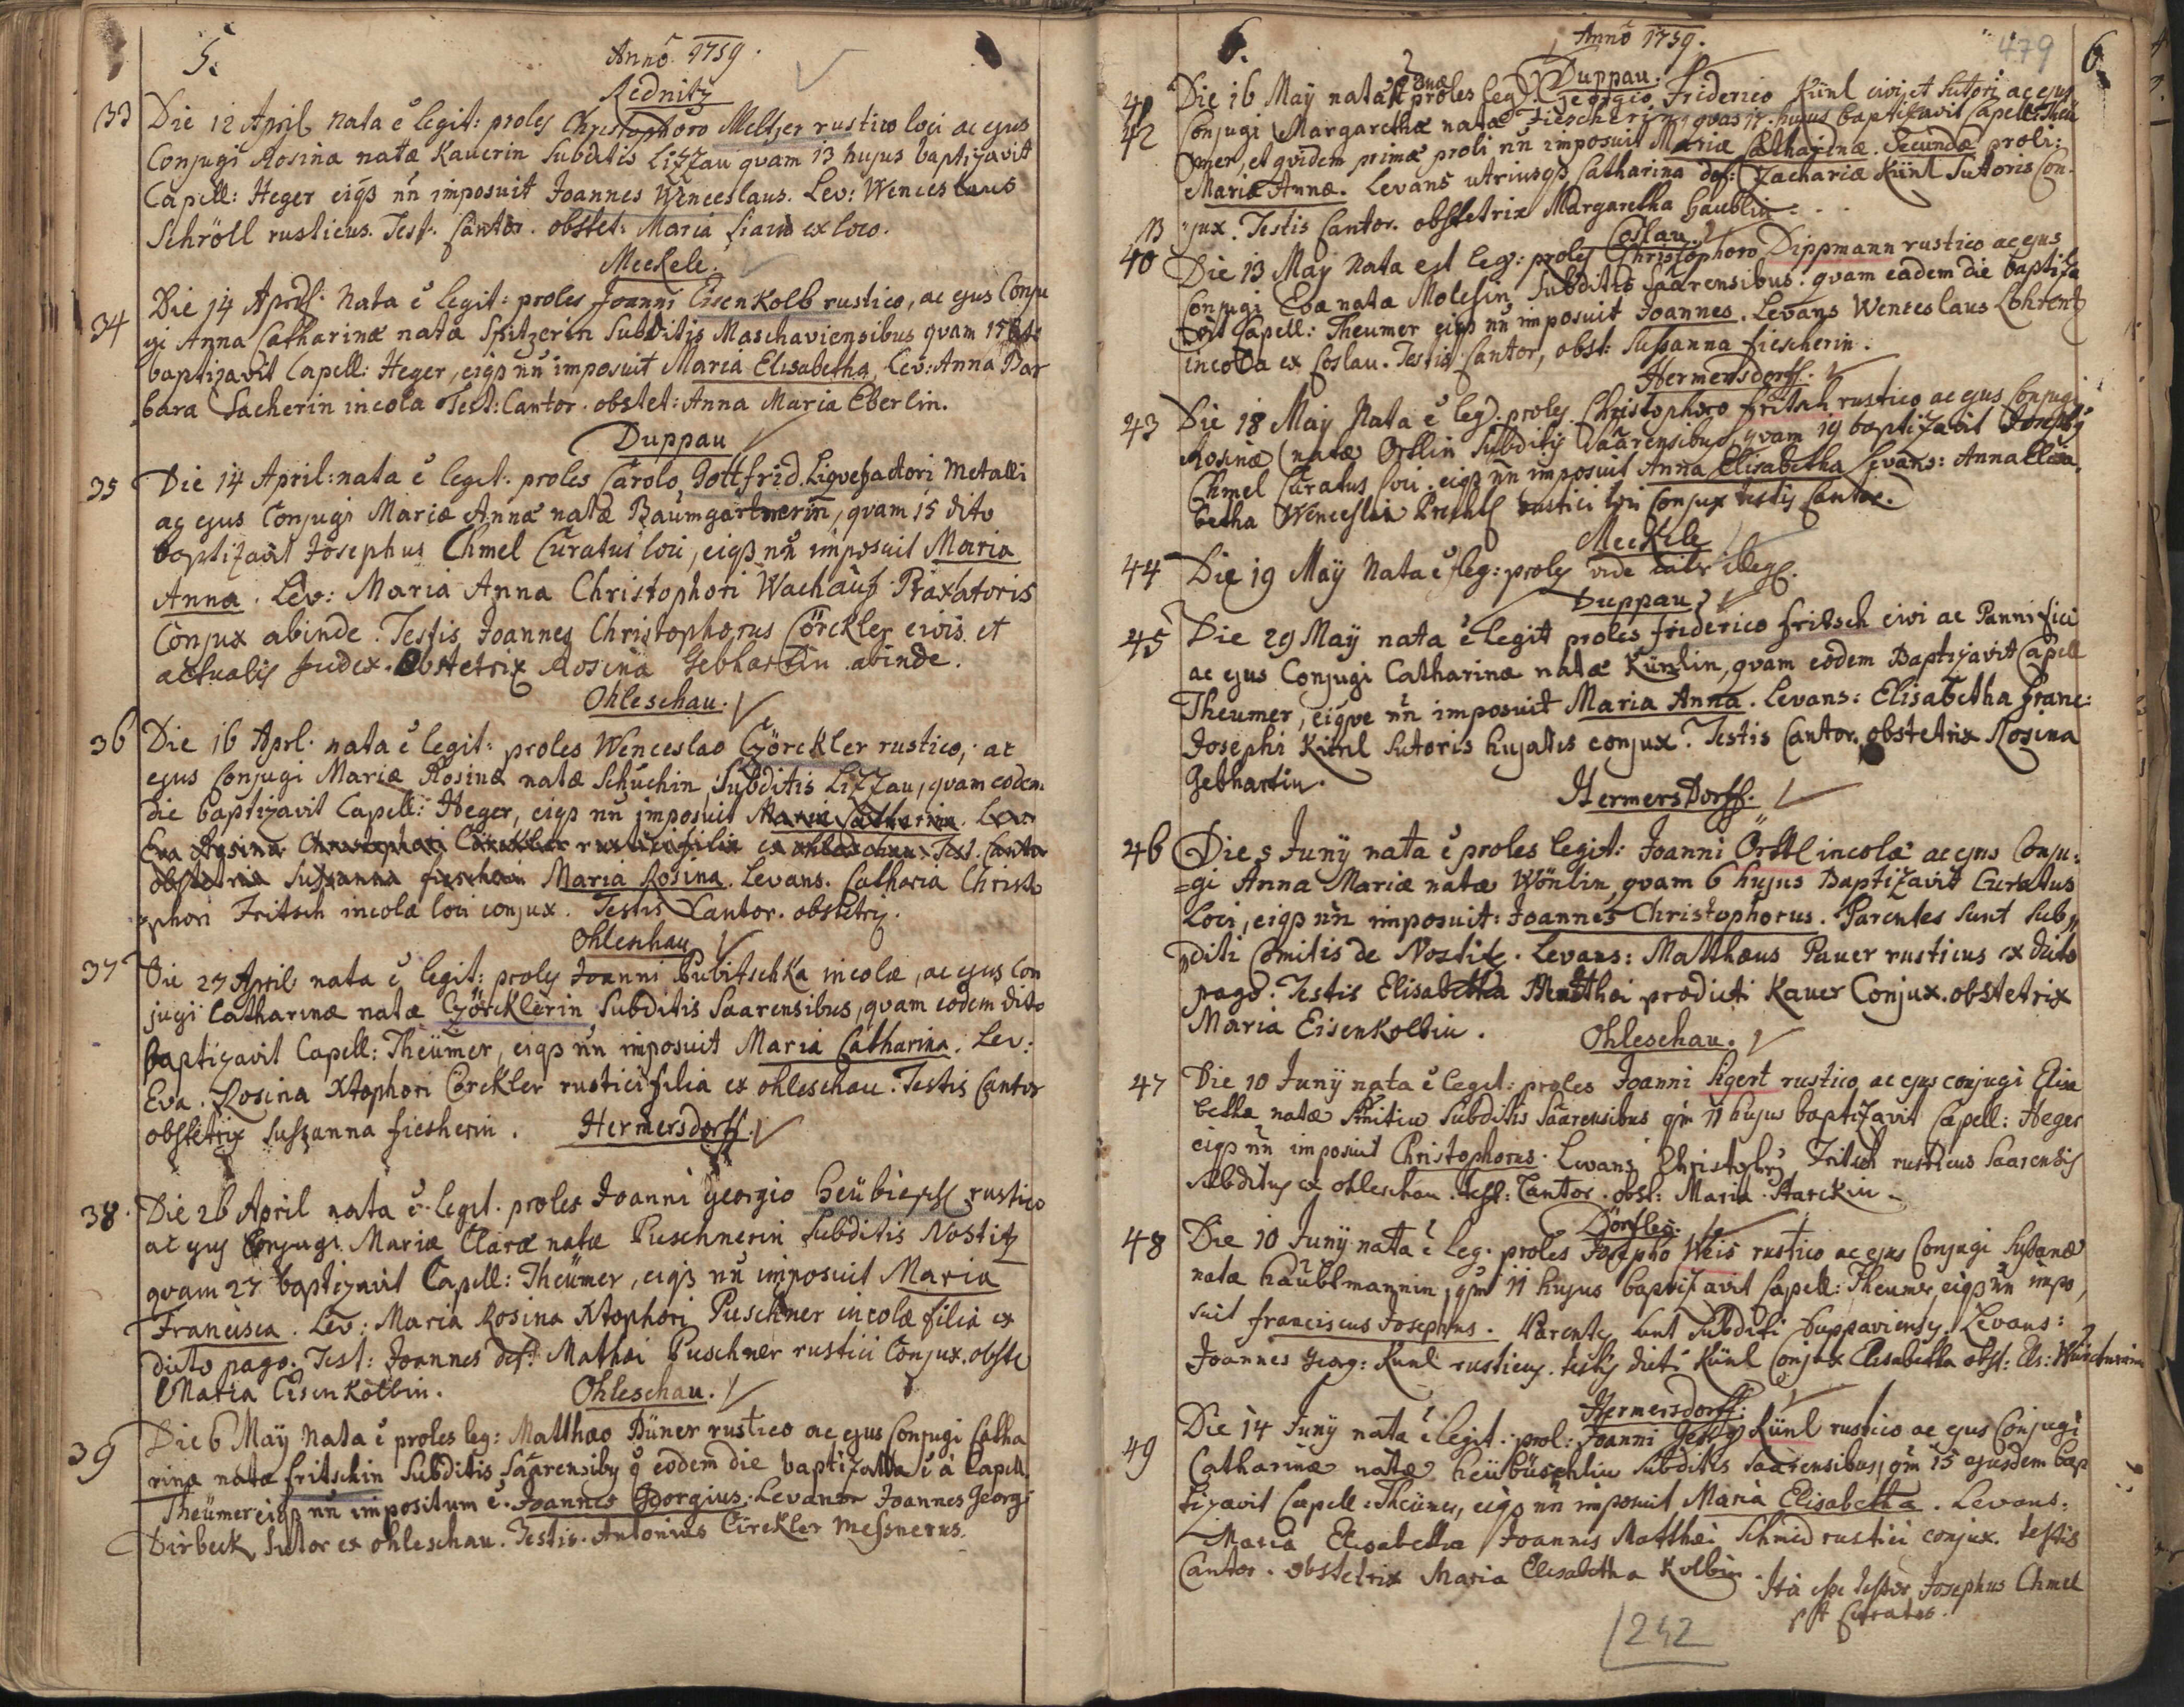 5.
Anno 1759.
Rednitz
33 Die 12 April nata ē legit: proles Christophoro Meltzer rustico loci ac ejus
Conjugi Rosina natæ Kauerin Subditis Lizzau quam 13 hujus baptizavit
Capell: Heger eiqз nn̄ imposuit Joannes Wenceslaus. Lev: Wenceslaus
Schröll rusticus. Test. Cantor. obstet: Maria ex loco.
Meckele.
34 Die 14 April. Nata ē legit: proles Joanni Eisenkolb rustico, ac ejus Conju
gi Anna Catharinæ nata Spitzerin Subditis Maschaviensibus quam 15
baptizavit Capell: Heger, eiqз nn̄ imposuit Maria Elisabetha, Lev: Anna Bar
bara Sacherin incola Test: Cantor. obstet: Anna Maria Eberlin.
Duppau
35 Die 14 April: nata ē legit. proles Carolo Gottfrid Liquefactori Metalli
ac ejus Conjugi Mariæ Annæ natæ Baumgartnerin, quam 15 dito
baptizavit Josephus Chmel Curatus loci, eiqз nn̄ imposuit Maria
Anna. Lev: Maria Anna Christophori Wachauß Praxatoris
Conjux abinde. Testis Joannes Christophorus Cörckler civis et
actualis judex. Obstetrix Rosina Gebhartin abinde.
Ohleschau.
36 Die 16 Aprl. nata ē legit: proles Wenceslao Görckler rustico, ac
ejus Conjugi Mariæ Rosinæ natæ Schuchin, Subditis Lizzau, quam eodem
die baptizavit Capell: Heger, eiqз nn̄ imposuit Maria Catharina. Lev:
Eva Rosina Christophori Cörckler rustici filia ex ohleschau Test. Cantor
obstetrix Sußanna fiescherin Maria Rosina. Levans. Catharia Christo
phori Fritsch incolæ loci conjux. Testis Cantor. obstetrix.
Ohleschau
37 Die 27 April nata ē legit: proles Joanni Pubitschka incolæ, ac ejus Con
jugi Catharinæ natæ Görcklerin Subditis Saarensibus, quam eodem dito
baptizavit Capell: Theümer, eiqз nn̄ imposuit Maria Catharina. Lev:
Eva. Rosina Xtophori Cörckler rustici filia ex ohleschau. Testis Cantor
obstetrix Sußanna fiesherin. Hermersdorff.
38. Die 26 April nata ē legit. proles Joanni Georgio heübieschl rustico
ac ejus Conjugi Mariæ Claræ natæ Puschnerin Subditis Nostitz
quam 27 baptizavit Capell: Theümer, eiqз nn̄ imposuit Maria
Francisca. Lev: Maria Rosina Xtophori Puschner incolæ filia ex
dicto pago. Test: Joannes def: Mathæi Puschner rustici Conjux. obste
Maria Eisenkolbin. Ohleschau.
39 Die 6 Maÿ Nata ē proles leg: Matthæo Düner rustico ac ejus Conjugi Catha
rina nata fritschin Subditis Saarensiby q̄ eodem die baptizata ē à Capell.
Theümer eiqз nn̄ impositum ē. Joannes Georgius. Levans Joannes Georgi
Dirbeck Sutor ex ohleschau. Testis. Antonius Circkler Meßnerus.
6. Anno 1759. 479 6
Duppau.
41 Die 16 Maÿ natæ st̄ duæ proles leg: Georgio Friderico Künl civi et Sutori ac ejus
42 Conjugi Margarethæ natæ Fiescherin, quas 17. hujus baptizavit Capell: Theü
mer, et quidem primæ proli nn̄ imposuit Mariæ Catharinæ. Secundæ proli:
Mariæ Annæ. Levans utriusqз Catharina def: Zachariæ Künl Sutoris Con-
jux. Testis Cantor. obstetrix Margaretha haublin.
NB Coslau.
40 Die 13 Maÿ Nata est leg: proles Christophoro Dippmann rustico ac ejus
Conjugi Eva nata Molesin Subditis Saarensibus. quam eadem die baptiza
vit Capell: Theumer eiqз nn̄ imposuit Joannes. Levans Wenceslaus Lohrentz
incola ex Coslau. Testis Cantor, obst: Sußanna fiescherin.
Hermersdorff.
43 Die 18 Maÿ Nata ē leg: proles Christophoro fritsch rustico ac ejus Conjugi
Rosinæ natæ Ortlin Subditis Saarensibus, quam 19 baptizavit Josephus
Chmel Curatus loci. eiqз nn̄ imposuit Anna Elisabetha Levans: Anna Elisa
betha Wenceslai rustici loci Conjux testis Cantor.
Meckele
44 Die 19 Maÿ Nata ē leg: proles vide illeg.
Duppau
45 Die 29 Maÿ nata ē legit proles friderico fritsch civi ac Pannifici
ac ejus Conjugi Catharinæ natæ Künlin, quam eodem Baptizavit Capell
Theumer, eique nn̄ imposuit Maria Anna. Levans: Elisabetha Franc:
Josephi Künl Sutoris hujatis conjux. Testis Cantor. obstetrix Rosina
Gebhartin.
Hermersdorff.
46 Die 5 Junÿ nata ē proles legit: Joanni Örttl incolæ ac ejus Conju-
=gi Anna Mariæ natæ Wönlin, quam 6 hujus Baptizavit Curatus
Loci, eiqз nn̄ imposuit: Joannes Christophorus. Parentes sunt Sub„
diti Comitis de Nostitz. Levans: Matthæus Pauer rusticus ex dicto
pago. Testis Elisabetha Matthæi prædicti Kauer Conjux. obstetrix
Maria Eisenkolbin. Ohleschau.
47 Die 10 Junÿ nata ē legit: proles Joanni Sigert rustico ac ejus conjugi Elisa
betha natæ Subditis Saarensibus qm̄ 11 hujus baptizavit Capell: Heger
eiqз nn̄ imposuit Christophorus. Levans Christoph Fritsch rusticus Saarensis
subditus ex ohleschau. Test: Cantor. obst: Maria Starckin.
Dörfles.
48 Die 10 Junÿ nata ē leg. proles Josepho Weis rustico ac ejus Conjugi Sußanæ
nata haübtmannin, qm̄ 11 hujus baptizavit Capell: Theumer, eiqз nn̄ impo,
suit franciscus Josephus. Parentes sunt Subditi Duppaviensy. Levans:
Joannes Georg: Kunl rusticus. testis dicti Künl Conjux Elisabetha obst: Els:
Hermersdorff:
49 Die 14 Junÿ nata ē legit. prol: Joanni Georg Künl rustico ac ejus Conjugi
Catharinæ natæ heübüschlin Subditis Saarensibus, qm̄ 15 ejusdem bap
tizavit Capell: Theümer, eiqз nn̄ imposuit Maria Elisabetha. Levans:
Maria Elisabetha Joannis Matthæi Schmid rustici conjux. testis
Cantor. obstetrix Maria Elisabetha Kolbin
Ità esse testor Josephus Chmel
Curatus.
242